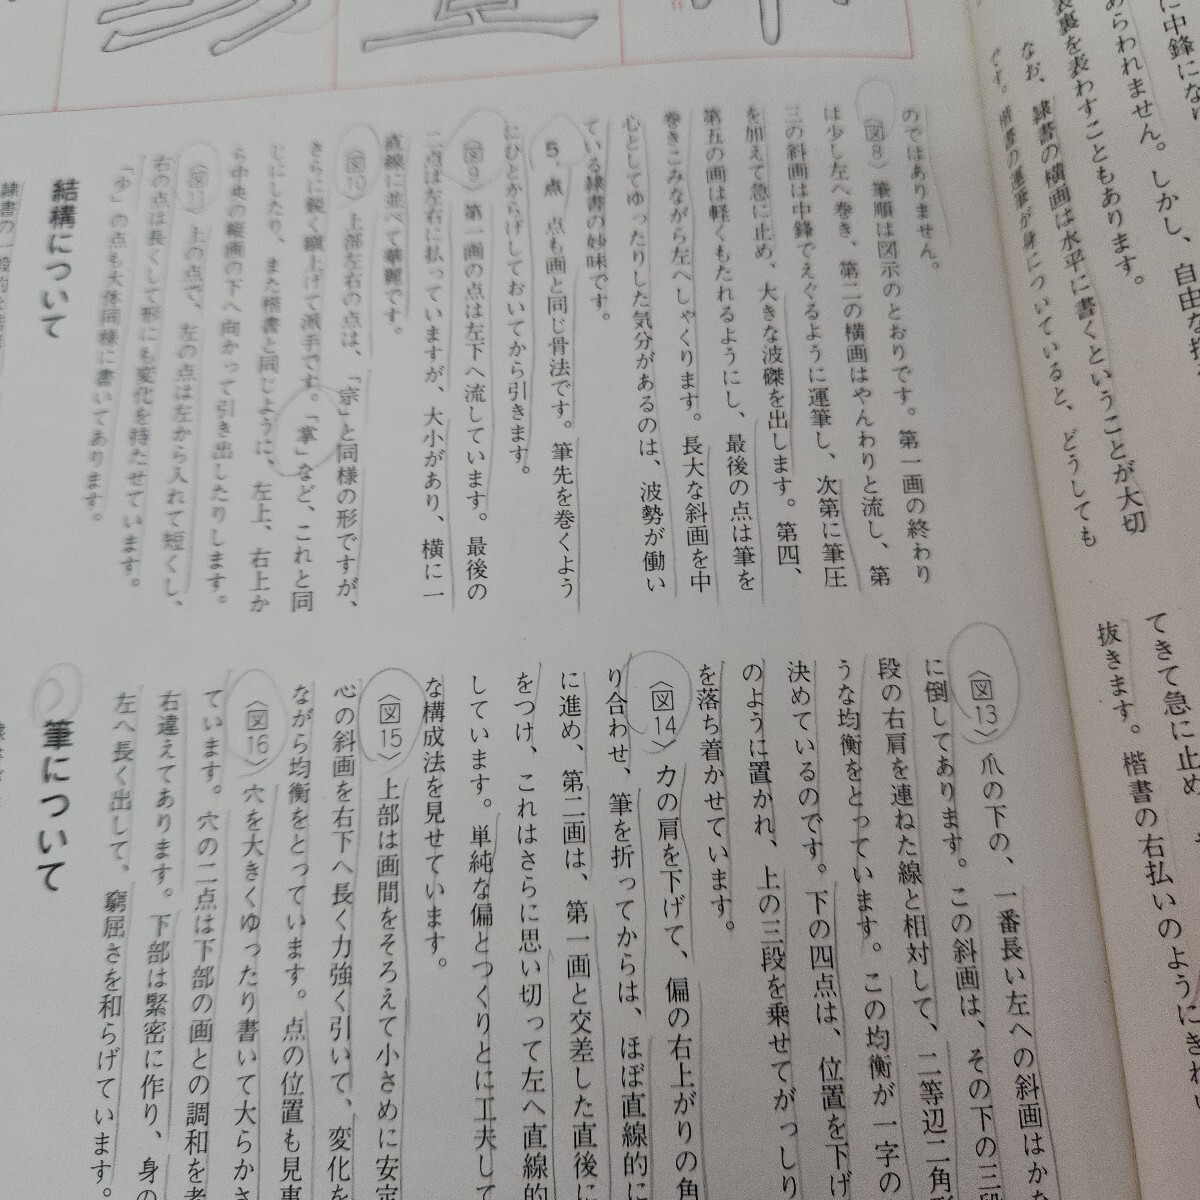 に中鋒にない
あらわれません。しかし、自由な
表裏を表わすこともあります。
なお、隷書の横画は水平に書くということが大切
です。楷書の運筆が身についていると、どうしても
てきて急に止め
抜きます。楷書の右払いのようにきれい
のではありません。
〈図8〉筆順は図示のとおりです。第一画の終わり
は少し左へ巻き、第二の横画はやんわりと流し、第
三の斜画は中鋒でえぐるように運筆し、次第に筆圧
を加えて急に止め、大きな波磔を出します。第四、
第五の画は軽くもたれるようにし、最後の点は筆を
巻きこみながら左へしゃくります。長大な斜画を中
心としてゆったりした気分があるのは、波勢が働い
ている隷書の妙味です。
5、点 点も画と同じ骨法です。筆先を巻くよう
にひとからげしておいてから引きます。
〈図9〉第一画の点は左下へ流しています。最後の
二点は左右に払っていますが、大小があり、横に一
直線に並べて華麗です。
〈図10〉上部左右の点は、「宗」と同様の形ですが、
さらに鋭く撥上げて派手です。「掌」など、これと同
じにしたり、また楷書と同じように、左上、右上か
ら中央の縦画の下へ向かって引き出したりします。
〈図11〉上の点で、左の点は左から入れて短くし、
右の点は長くして形にも変化を持たせています。
「少」の点も大体同様に書いてあります。
結構について
〈図13〉爪の下の、一番長い左への斜画はか
に倒してあります。この斜画は、その下の三
段の右肩を連ねた線と相対して、二等辺三角形
うな均衡をとっています。この均衡が一字の
決めているのです。下の四点は、位置を下げ
のように置かれ、上の三段を乗せてがっしり
を落ち着かせています。
〈図14〉カの肩を下げて、偏の右上がりの角
り合わせ、筆を折ってからは、ほぼ直線的に
に進め、第二画は、第一画と交差した直後に
をつけ、これはさらに思い切って左へ直線的
しています。単純な偏とつくりとに工夫して
な構成法を見せています。
〈図15〉上部は画間をそろえて小さめに安定
心の斜画を右下へ長く力強く引いて、変化を
ながら均衡をとっています。点の位置も見事
〈図16〉穴を大きくゆったり書いて大らかさ
ています。穴の二点は下部の画との調和を考
右違えてあります。下部は緊密に作り、身の
左へ長く出して、窮屈さを和らげています。
筆について